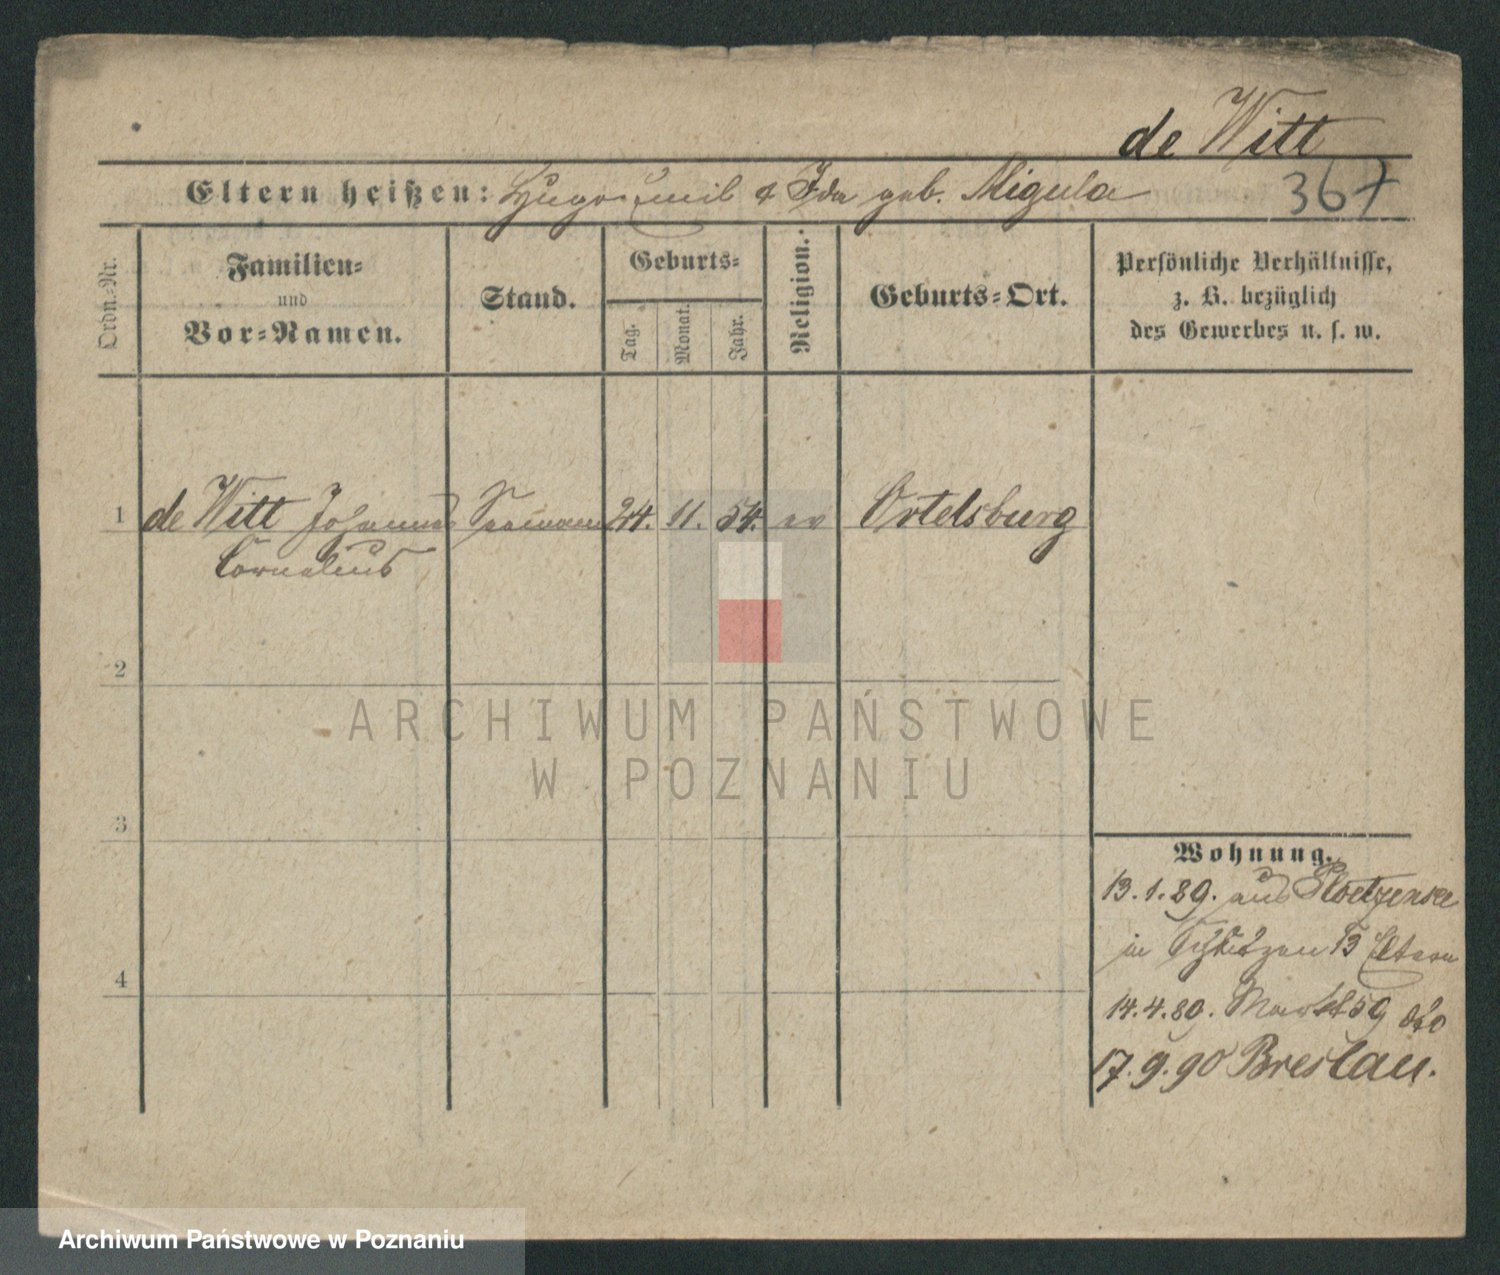 de Witt
Eltern heißen: Hugo Emil & Ida geb. Migula
367
Ordn.-Nr.
Familien-
und
Vor-Namen.
Stand.
Geburts-
Tag.
Monat.
Jahr.
Religion.
Geburts-Ort.
Persönliche Verhältnisse,
z. B. bezüglich
des Gewerbes u. s. w.
1 de Witt Johannes Seemann 24. 11. 54. ev Ortelsburg
Cornelius
2
3
4
Wohnung.
13.1.89. aus Ploetzensee
in Schützen 13 Eltern
14.4.89. Markt 59
17.9.90 Breslau.
ARCHIWUM PAŃSTWOWE
W POZNANIU
Archiwum Państwowe w Poznaniu